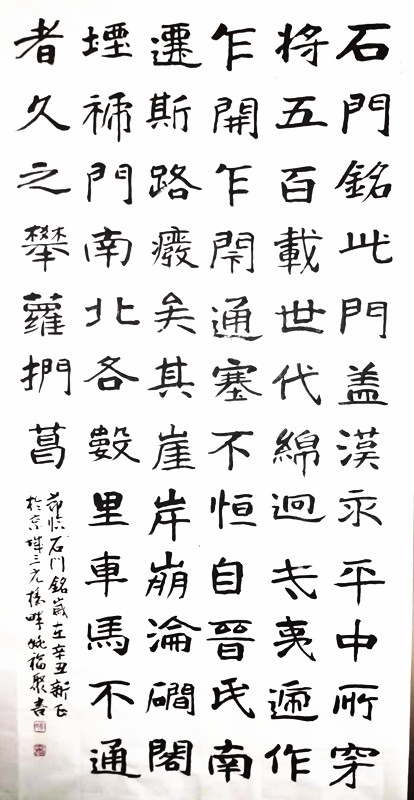 石門銘此門盖漢永平中所穿
將五百載世代綿迥戎夷遞作
乍開乍閇通塞不恒自晉氏南
遷斯路廢矣其崖岸崩淪磵閣
堙褫門南北各數里車馬不通
者久之攀蘿捫葛
節臨石门銘歲在辛丑新正
於京城三元橋畔 福聚書